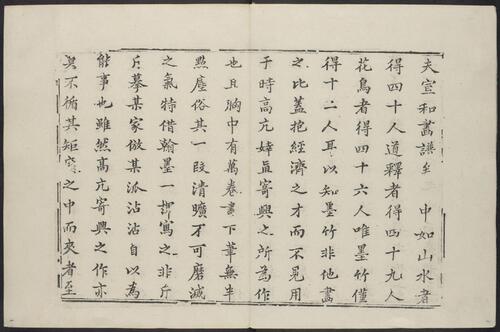 夫宣和畫譜至中如山水者
得四十人道釋者得四十九人
花鳥者得四十六人唯墨竹僅
得十二人耳以知墨竹非他畫
之比蓋抱經濟之才而不見用
于時高亢婞直寄興之所為作
也且胸中有萬卷書下筆無半
點塵俗其一段清曠不可磨滅
之氣特借翰墨一揮寫之非斤
斤摹某家倣某派沾沾自以為
能事也雖然高亢寄興之作亦
其不循其矩之中而來者至